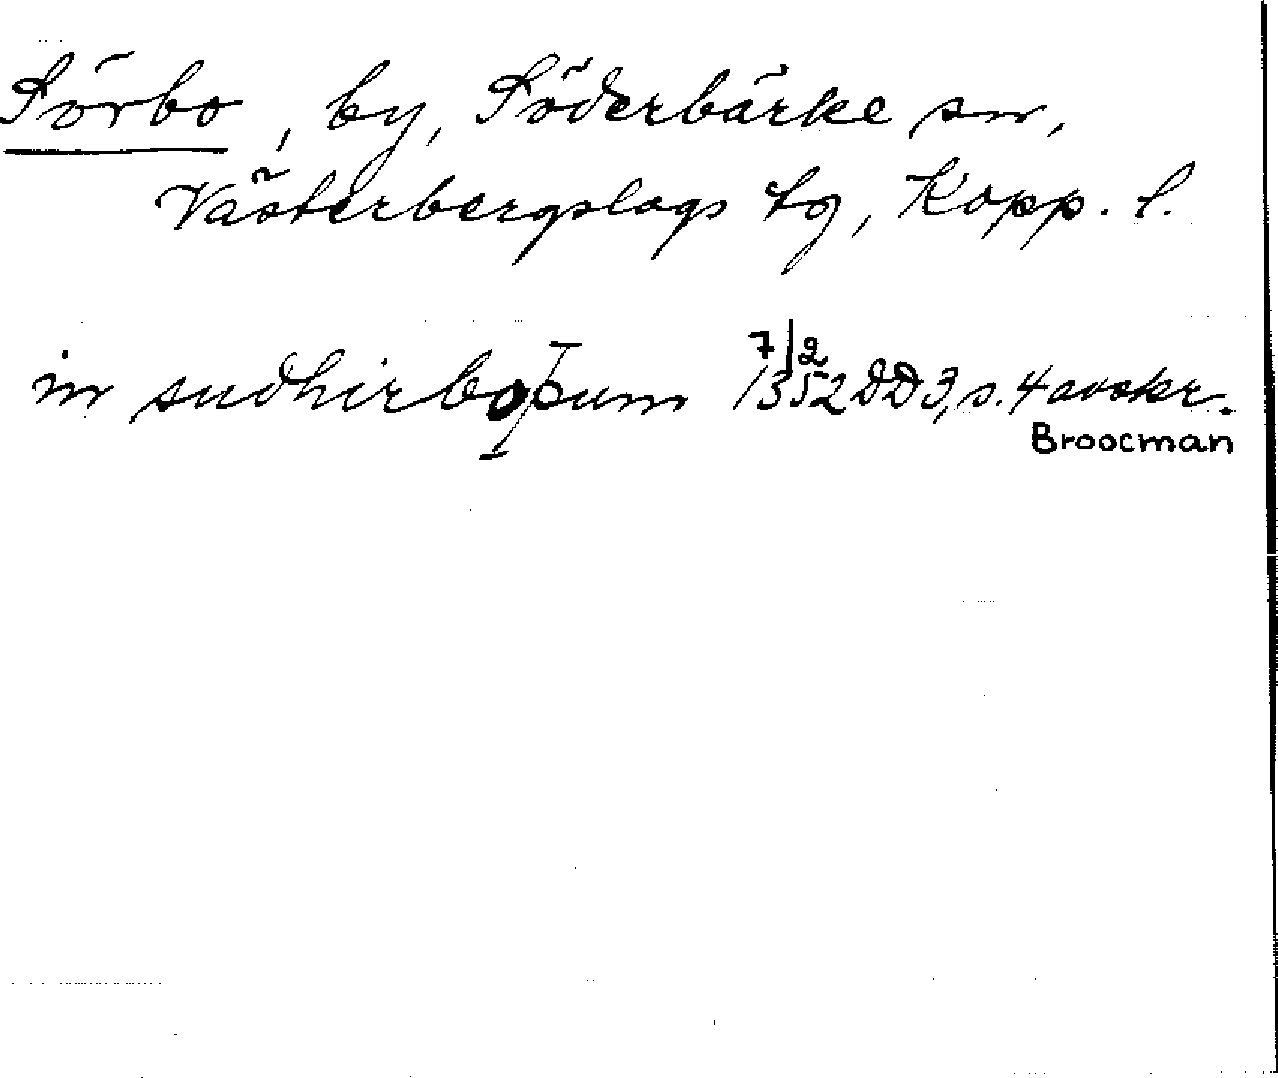 Sörbo, by, Söderbärke sn,
Västerbergslags tg, Kopp. l.
in sudhirbosum 7/2 1352 DD3, s. 4 avskr.
Broocman